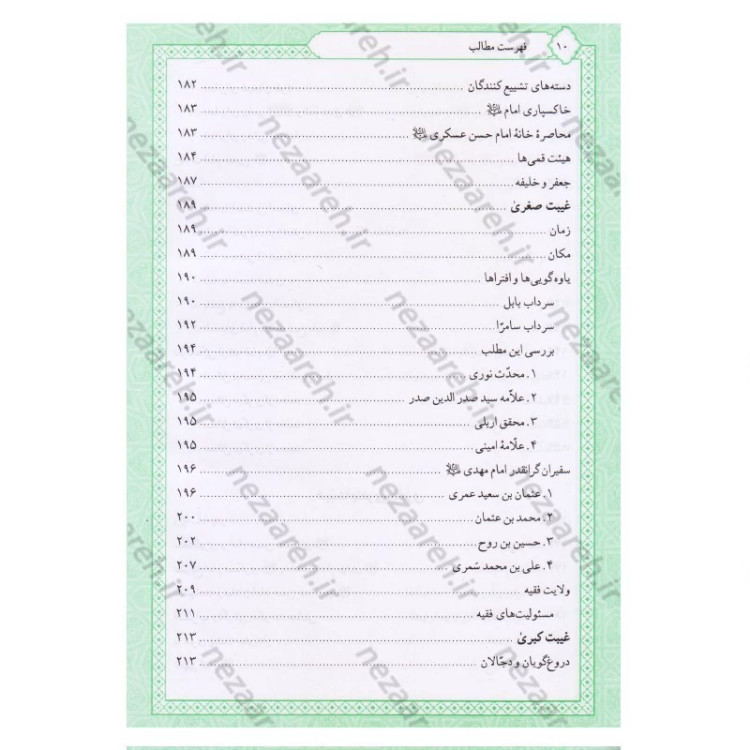 ۱۰ فهرست مطالب
دسته‌های تشییع کنندگان ۱۸۲
خاکسپاری امام ﷺ ۱۸۳
محاصرهٔ خانهٔ امام حسن عسکری ﷺ ۱۸۳
هیئت قمی‌ها ۱۸۴
جعفر و خلیفه ۱۸۷
غیبت صغریٰ ۱۸۹
زمان ۱۸۹
مکان ۱۸۹
یاوه‌گویی‌ها و افتراها ۱۹۰
سرداب بابل ۱۹۰
سرداب سامرّا ۱۹۲
بررسی این مطلب ۱۹۴
۱. محدّث نوری ۱۹۴
۲. علاّمه سید صدر الدین صدر ۱۹۵
۳. محقق اربلی ۱۹۵
۴. علاّمهٔ امینی ۱۹۵
سفیران گرانقدر امام مهدی ﷺ ۱۹۶
۱. عثمان بن سعید عمری ۱۹۶
۲. محمد بن عثمان ۲۰۰
۳. حسین بن روح ۲۰۲
۴. علی بن محمد سَمُری ۲۰۷
ولایت فقیه ۲۰۹
مسئولیت‌های فقیه ۲۱۱
غیبت کبریٰ ۲۱۳
دروغ‌گویان و دجّالان ۲۱۳
nezaareh.ir